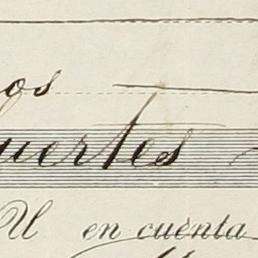 os
uertes
U en cuenta